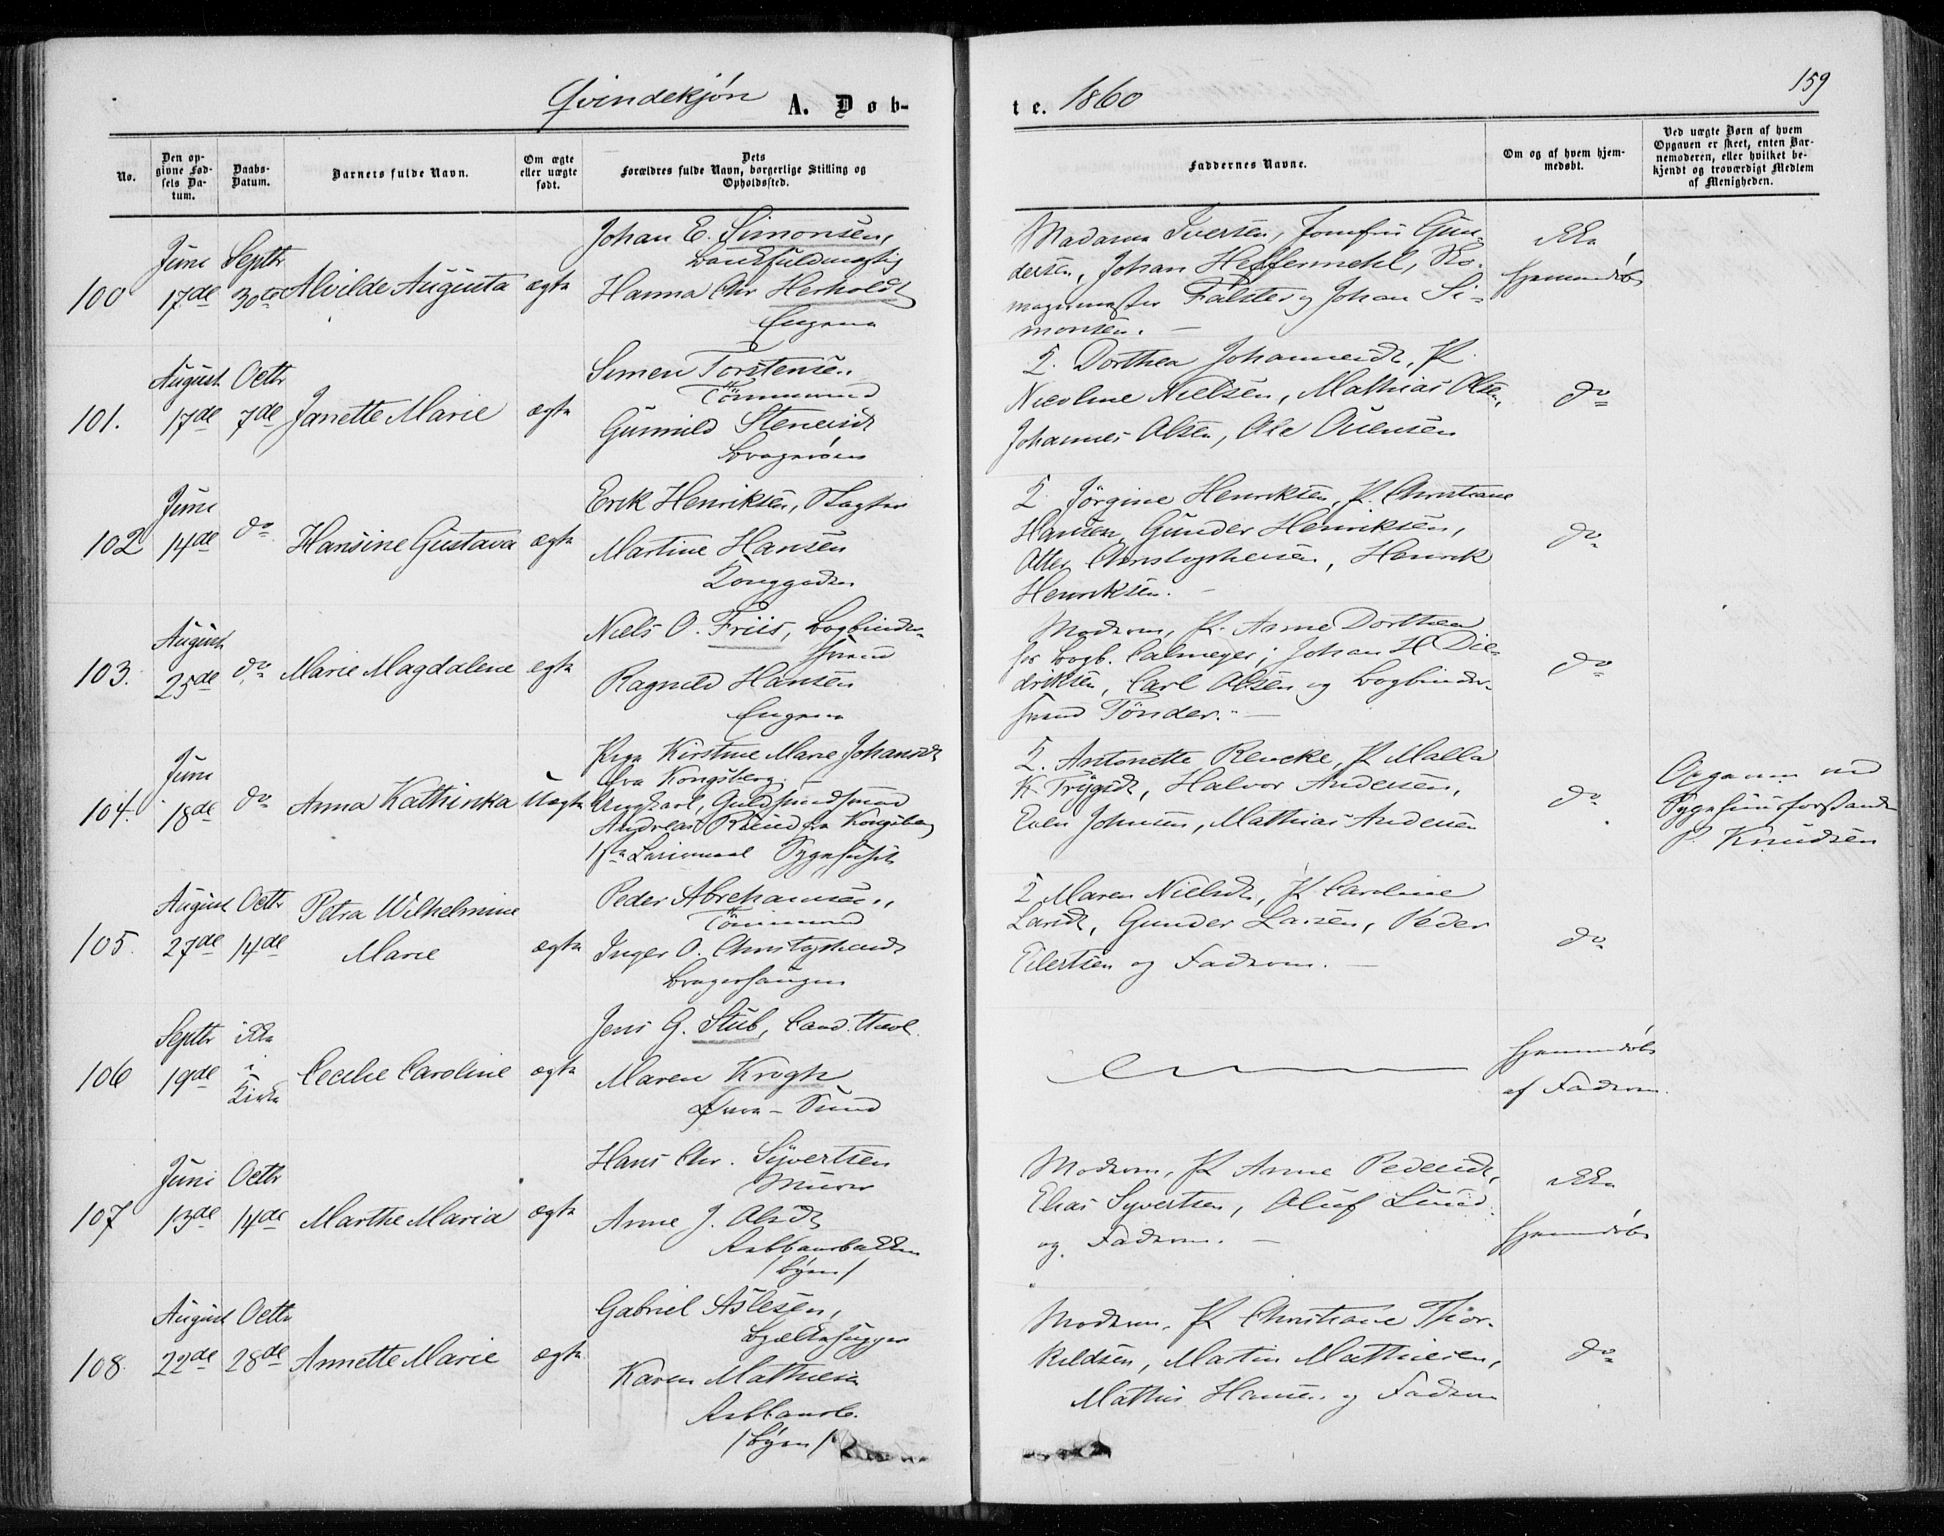 Qvindekjøn A. Døb-
te. 1860
159
No.
Den op-
givne Fød-
sels Da-
tum.
Daabs-
Datum.
Barnets fulde Navn.
Om ægte
eller uægte
født.
Dets
Forældres fulde Navn, borgerlige Stilling og
Opholdssted.
Faddernes Navne.
Om og af hvem hjem-
medøbt.
Ved uægte Børn af hvem
Opgaven er skeet, enten Bar-
nemoderen, eller hvilket be-
kjendt og troværdigt Medlem
af Menigheden.
100
Juni
17de
Septbr
30te
Alvilde Augusta
ægte
Johan E. Simonsen,
Hanna Chr Herholdt
Engene
Madame Iversen, Jomfru Gun-
dersen, Johan Heffermehl, Sko-
magermester Falster og Johan Si-
monsen. —
ikke
hjemmedøbt
101.
August
17de
Octbr
7de
Janette Marie
ægte
Simen Torstensen,
Tömmermand
Gunnild Stenersdt
Bragerøen
Q. Dorthea Johannesdt, P.
Nicoline Nielsen, Mathias Olsen,
Johannes Olsen, Ole Evensen
do
102
Juni
14de
do
Hansine Gustava
ægte
Erik Henriksen, Slagter
Martine Hansen
Konggaden
Q. Jörgine Henriksen, P. Christiane
Hansen, Gunder Henriksen,
Christophersen, Henrik
Henriksen. —
do
103.
August
25de
do
Marie Magdalene
ægte
Niels O. Friis, Bogbinder-
svend
Ragnild Hansen
Engene
Moderen, P. Anne Dorthea
Bogb. Calmeyer, Johan H Die-
driksen, Carl Olsen og Bogbinder-
svend Tönder. —
do
104.
Juni
18de
do
Anna Kathinka
Uægte
Pige Kirstine Marie Johansdt
fra Kongsberg.
Ungkarl, Guldsmedsvend
Andreas fra Kongsberg
1ste Leiermaal Sygehuset
Q. Antonette Rencke, P Malla
K. Trygdt, Halvor Andersen,
Even Johnsen, Mathias Andersen
do
Opgaven ved
Sygehuusforstander
P. Knudsen
105.
August
27de
Octbr
14de
Petra Wilhelmine
Marie
ægte
Peder Abrahamsen,
Tömmermand
Inger O. Christophersdt
Bragerhaugen
Q Maren Nielsdt, P Caroline
Larsdt, Gunder Larsen, Peder
Eilertsen og Faderen. —
do
106
Septbr
19de
ikke
i
Kirke
Cecilie Caroline
ægte
Jens G. Stub, Cand. theol.
Maren Krogh
hjemmedøbt
af Faderen.
107
Juni
13de
Octbr
14de
Marthe Maria
ægte
Hans Chr. Syvertsen
Murer
Anne J. Olsdt
/Byen/
Moderen, P Anne Pedersdt,
Elias Syvertsen, Oluf Lund
og Faderen. —
ikke
hjemmedøbt
108
August
22de
Octbr
28de
Annette Marie
ægte
Gabriel Aslesen,
Bjælkehugger
Karen Mathiesen
/Byen/
Moderen, P Christiane Thor-
kildsen, Martin Mathiesen,
Mathis Hansen og Faderen
do